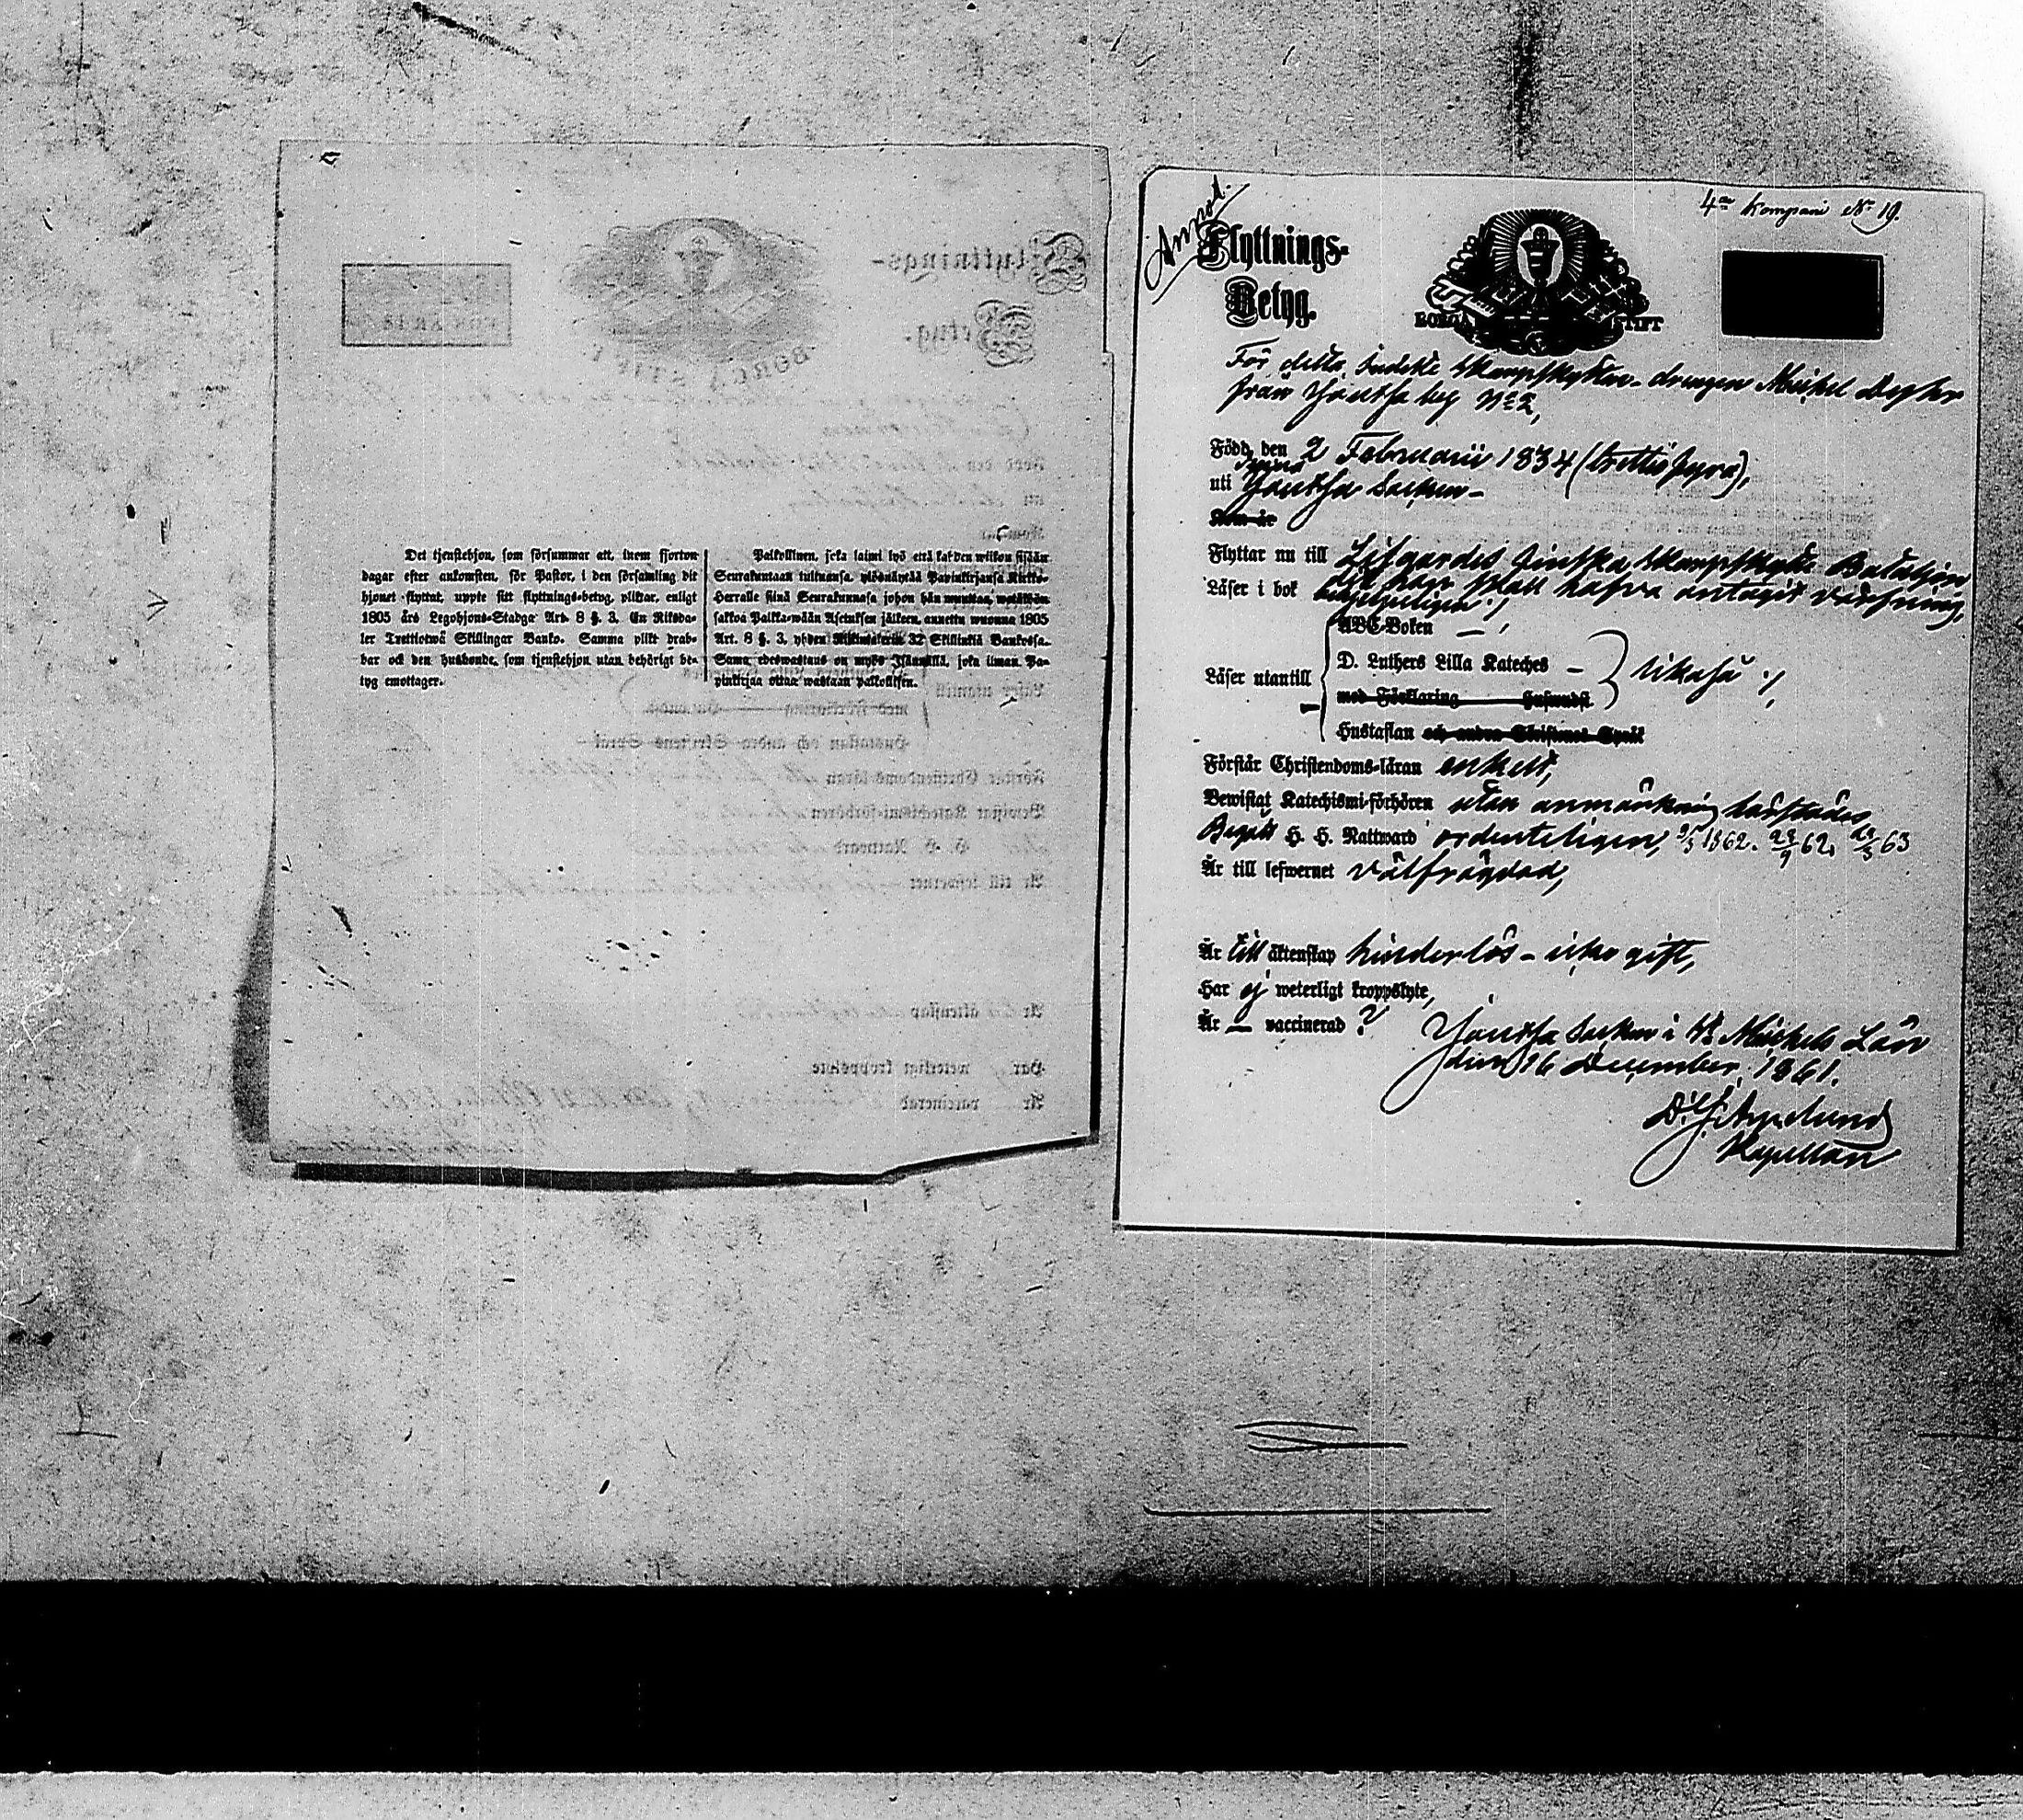 Det tjenstehjon, som försummar att, inom fjorton
dagar efter ankomsten, för Pastor, i den församling dit
hjonet flyttat, uppte sitt flyttnings-betyg, pliktar, enligt
1805 års Legohjons-Stadga Art. 8 §. 3. En Riksda-
ler Trettiotwå Skillingar Banko. Samma plikt drab-
bar ock den husbonde, som tjenstehjon utan behörigt be-
tyg emottager.
Palkollinen, joka laimi lyö että kahden wiikon sisään
Seurakuntaan tultuansa, ylösnäyttää Papinkirjansa Kirkko-
Herralle siinä Seurakunnasa johon hän muuttaa, wetäköön
sakkoa Palkka-wään Asetuksen jälkeen, annettu wuonna 1805
Art. 8 §. 3, yhden Riksntalerin 32 Skillinkiä Bankossa.
Sama edeswastaus on myös Isännällä, joka ilman Pa-
pinkirjaa ottaa wastaan palkollisen.
4de Kompani No 19.
Flyttnings-
Betyg.
BORGÅ STIFT
För detta Indelte Skarpskytten- drengen Mickel
från Joutsa by No 2,
Född den 2 Februarii 1834 (trettiofyra),
uti Joutsa Socken -
Kom år
Flyttar nu till Lifgardes Finska Skarpskytte Bataljon
der han skall hafva antagit värfning,
Läser i bok
ABC-Boken —
D. Luthers Lilla Kateches —
Läser utantill
med Förklaring
Hustaflan och andra Skriftenes Språk
Förstår Christendoms-läran enkelt,
Bewistat Katechismi-förhören utan anmärkning
Begått H. H. Nattward ordenteligen, 1862. 62. 63
Är till lefwernet välfrägdad,
Är till äktenskap hinderlös - icke gift,
Har ej weterligt kroppslyte,
Är — vaccinerad ?
Joutsa Socken i St Mickels Län
den 16 December 1861.
Kapellan